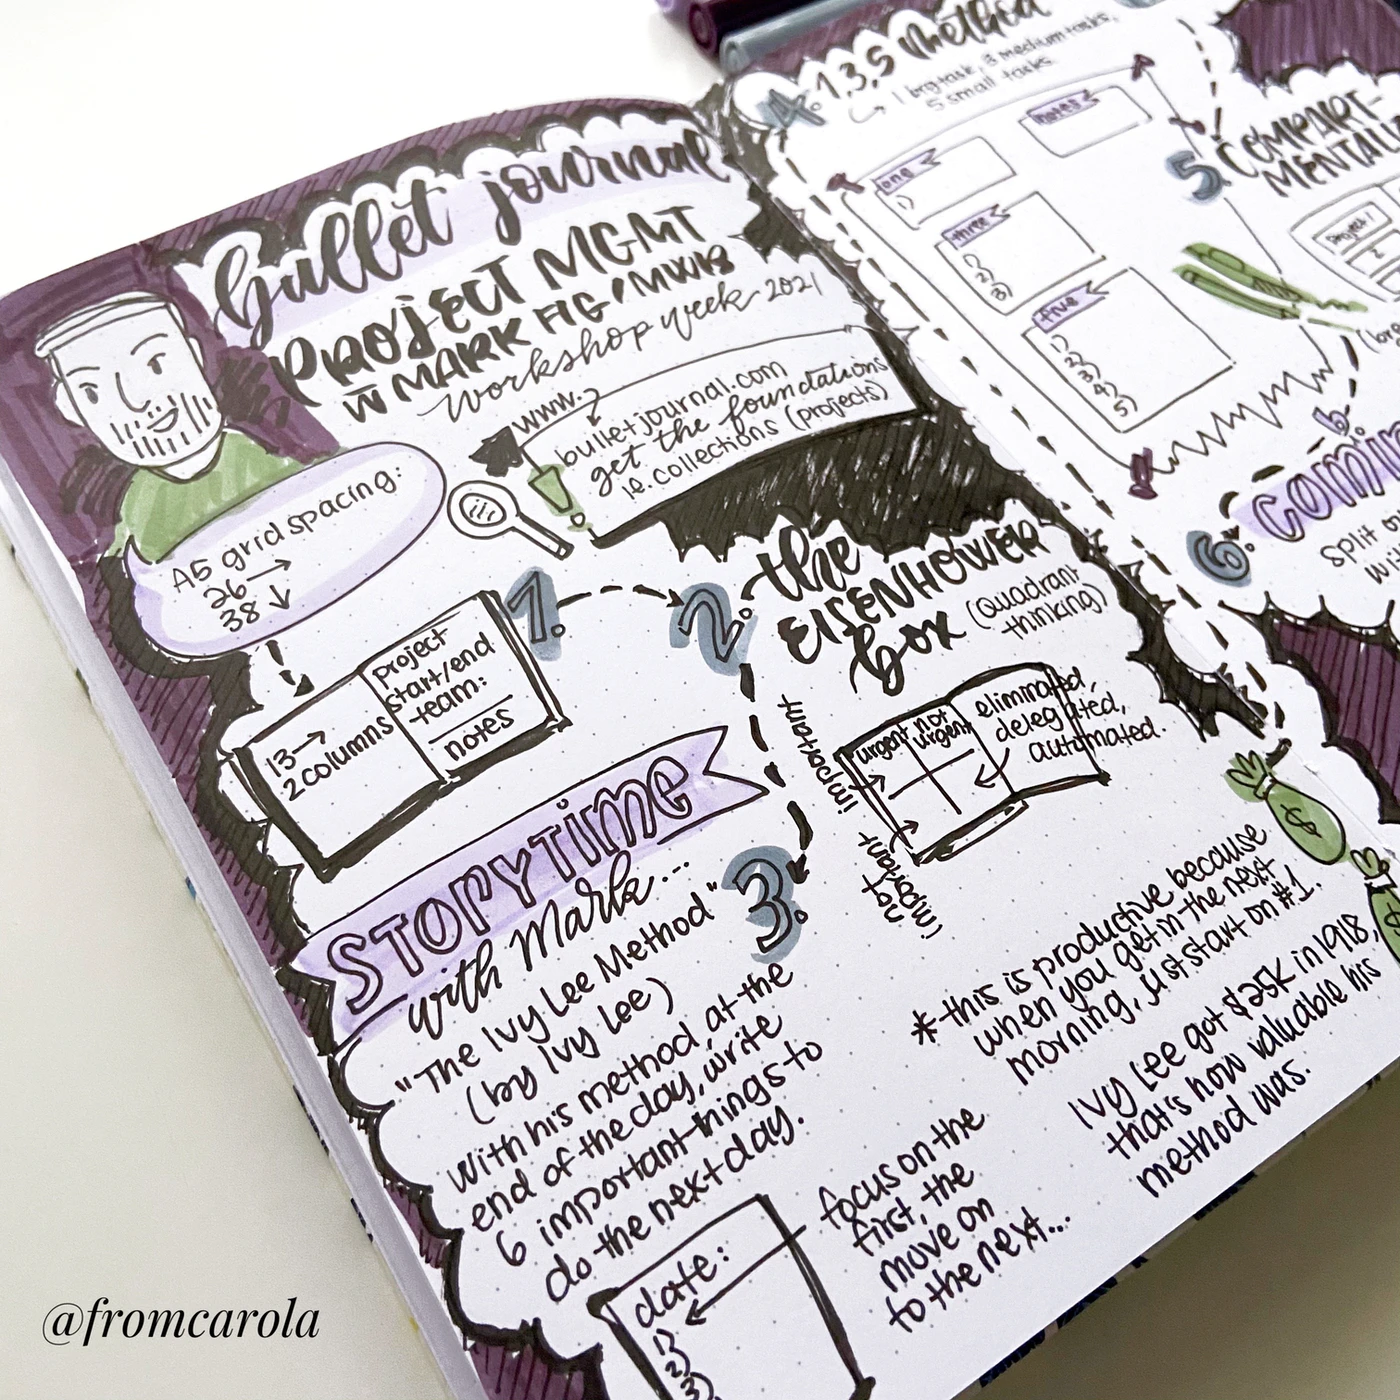 bullet journal
PROJECT MGMT
W MARK FIG / MWKB
workshop week 2021
www.
bulletjournal.com
get the foundations
ie. collections (projects)
A5 grid spacing:
26 →
38 ↓
1.
13 →
2 columns
project
start/end
team:
notes
2. the
EISENHOWER
box (Quadrant
thinking)
important
not
important
urgent
not
urgent
eliminated,
delegated,
automated.
STORYTIME
with Mark...
3.
"The Ivy Lee Method"
(by Ivy Lee)
with his method, at the
end of the day, write
6 important things to
do the next day.
date:
1)
2)
3)
focus on the
first, the
move on
to the next...
* this is productive because
when you get in the next
morning, just start on #1.
Ivy Lee got $25K in 1918,
that's how valuable his
method was.
$
4. 1,3,5 method
→ 1 big task, 3 medium tasks,
5 small tasks.
notes
one
1)
three
1)
2)
3)
five
1)
2)
3)
4)
5)
5. COMPART-
MENTALI
project 1
2
6.
split
@fromcarola